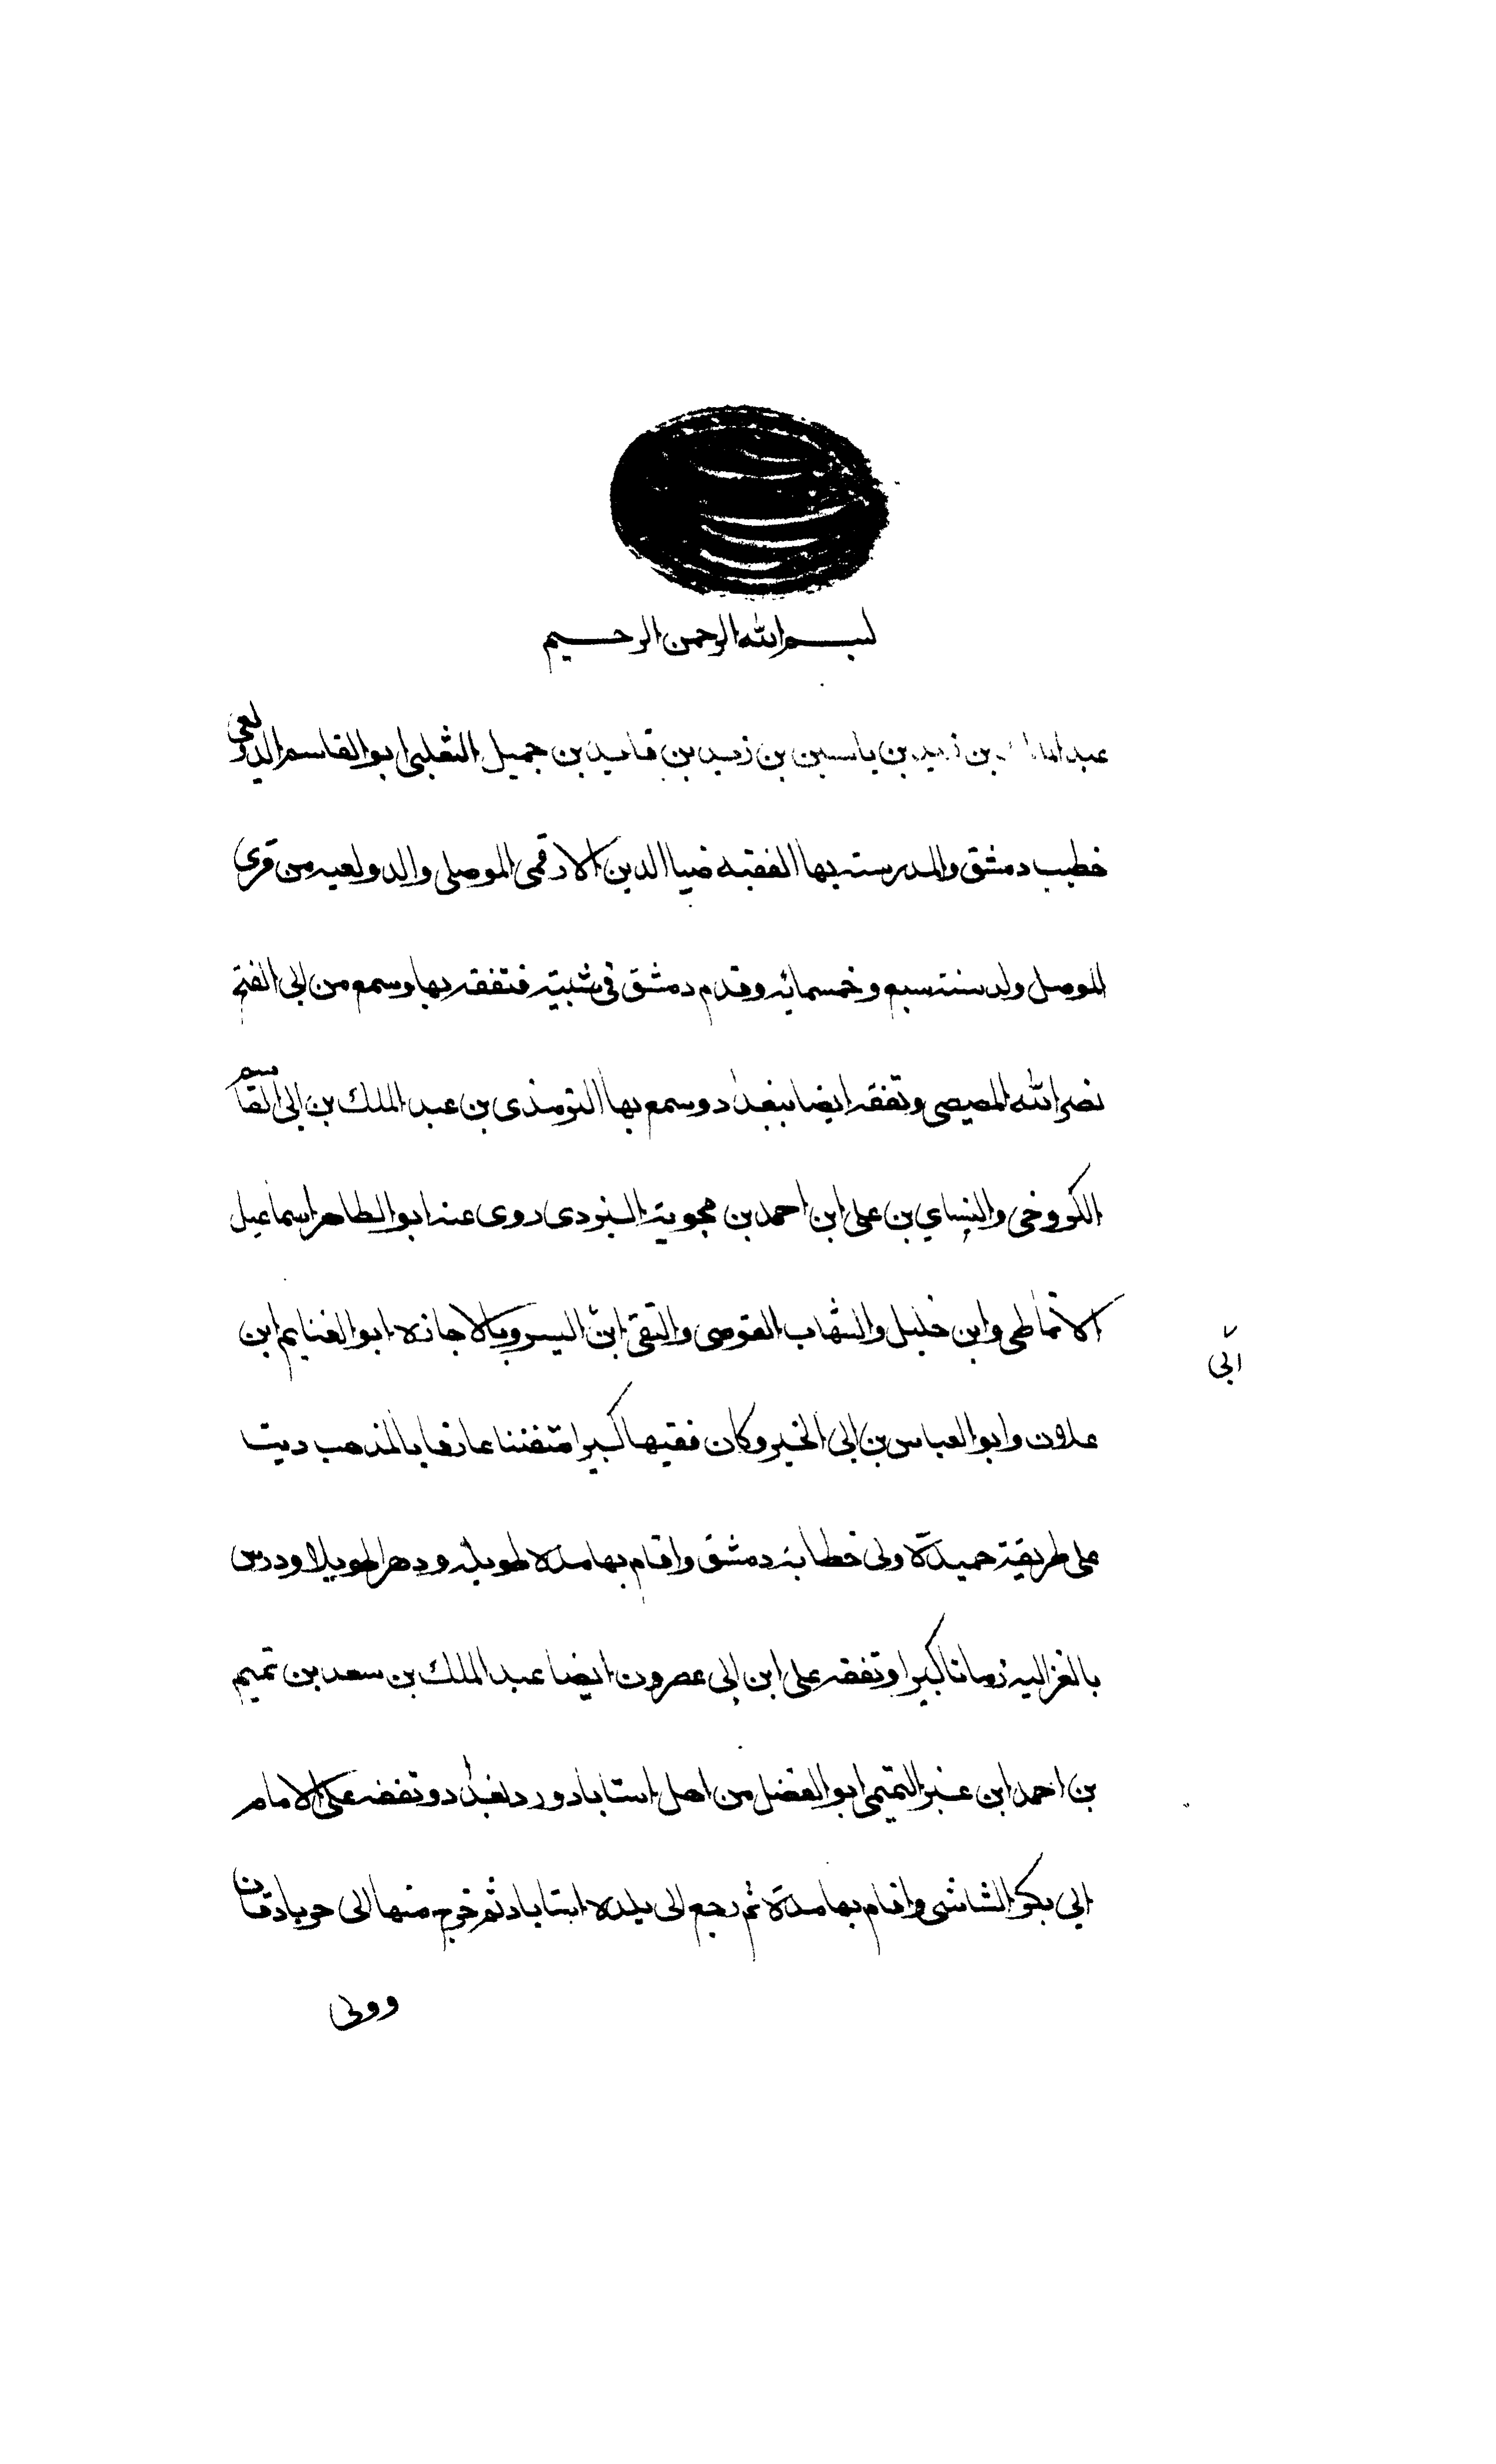 بسم الله الرحمن الرحيم
عبد الملك بن زيد بن ياسين بن زيد بن قايد بن جميل الثعلبى ابو القاسم الدولعى
خطيب دمشق والمدرسته بها الفقيه ضيا الدين الارقمى الموصلى والدولعيه من قرى
الموصل ولد سنته سبع وخمسمائه وقدم دمشق فى شبيته فتفقه بها وسمع من ابى الفتح
نصر الله المصيصى وتفقه ايضا ببغداد وسمع بها الترمذى بن عبد الملك بن ابى القاسم
الكروخى والنساي بن على ابن احمد بن محموية اليزدى روى عنه ابو الطاهر اسماعيل
الانماطى وابن خليل والشهاب القوصى والتقى ابن اليسر وبالاجازه ابو الغنايم ابن
ابى
علاون وابو العباس بن ابى الخير وكان فقيها كبيرا متفننا عارفا بالمذهب ديتا
على طريقة حميدة ولى خطابة دمشق واقام بها مدة طويله ودهرا طويلا ودرس
بالغزاليه زمانا كبيرا وتفقه على ابن ابى عصرون ايضا عبد الملك بن سعد بن تميم
بن احمد ابن عنبر التميمى ابو الفضل من اهل استاباد ورد بغداد وتفقه على الامام
ابي بكر الشاشى واقام بها مدة ثم رجع الى بلده استاباد ثم خرج منها الى جرباذقان
وولى